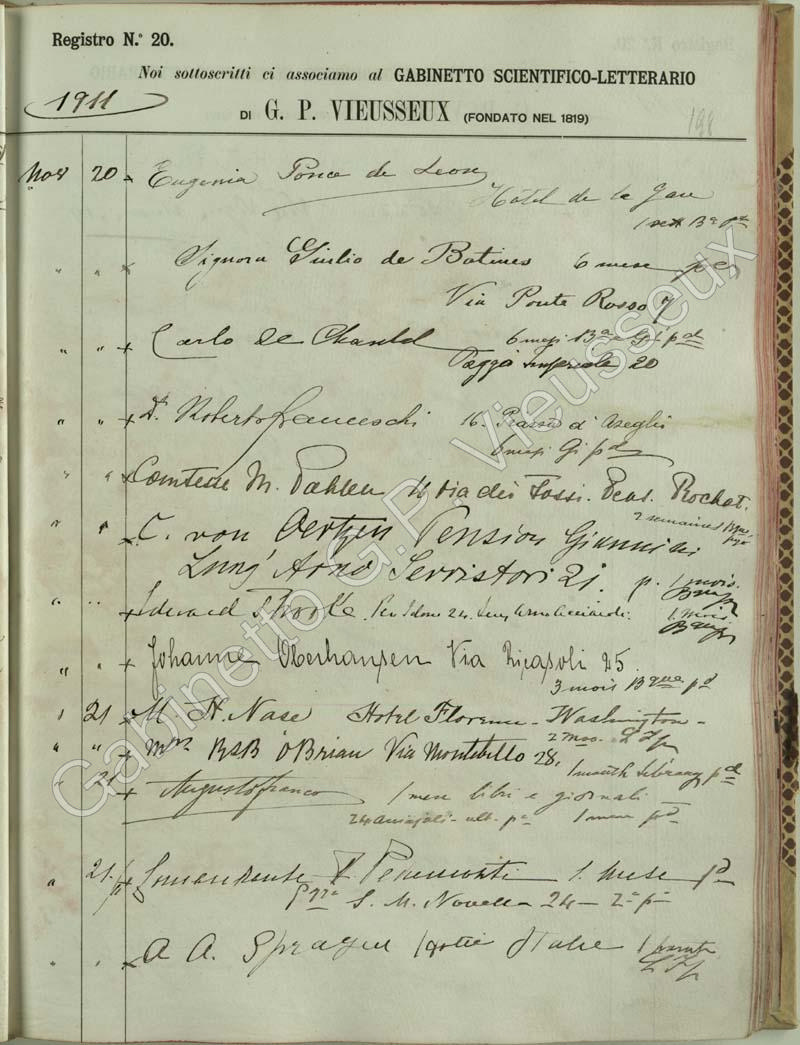 Registro N.° 20.
Noi sottoscritti ci associamo al GABINETTO SCIENTIFICO-LETTERARIO
1911
DI G. P. VIEUSSEUX (FONDATO NEL 1819)
198
Nov 20 Eugenia Ponce de Leon
Hôtel de la Gare
" " Signora Giulio de Batines 6 mesi
Via Ponte Rosso 7
" " Carlo de 6 mesi
Poggio Imperiale 20
" " Dr. Roberto Franceschi 16. Piazza d'Azeglio
6 mesi
" " Comtesse M. Pahlen 16 Via dei Fossi. Pens. Rochat.
2 semaines
" " C. von Oertzen Pension Giannini
Lung' Arno Serristori 21. p. 1 mois.
" " Edward Lung'Arno Acciaioli. 1 mois
" " Johanne Oberhansen Via Ricasoli 25
3 mois Bque pd
" 21 M. H. Nase Hotel Florence - Washington -
2 mos.
" " Mrs O'Brian Via Montebello 28,
1 month Library pd
" 21 Augusto Franco 1 mese libri e giornali
1 mese pd
" 21. Comandante 1. mese pd
S. M. Novella 24 - 2° p°
" " A A. Sprague Hotel Italie
Gabinetto G.P. Vieusseux